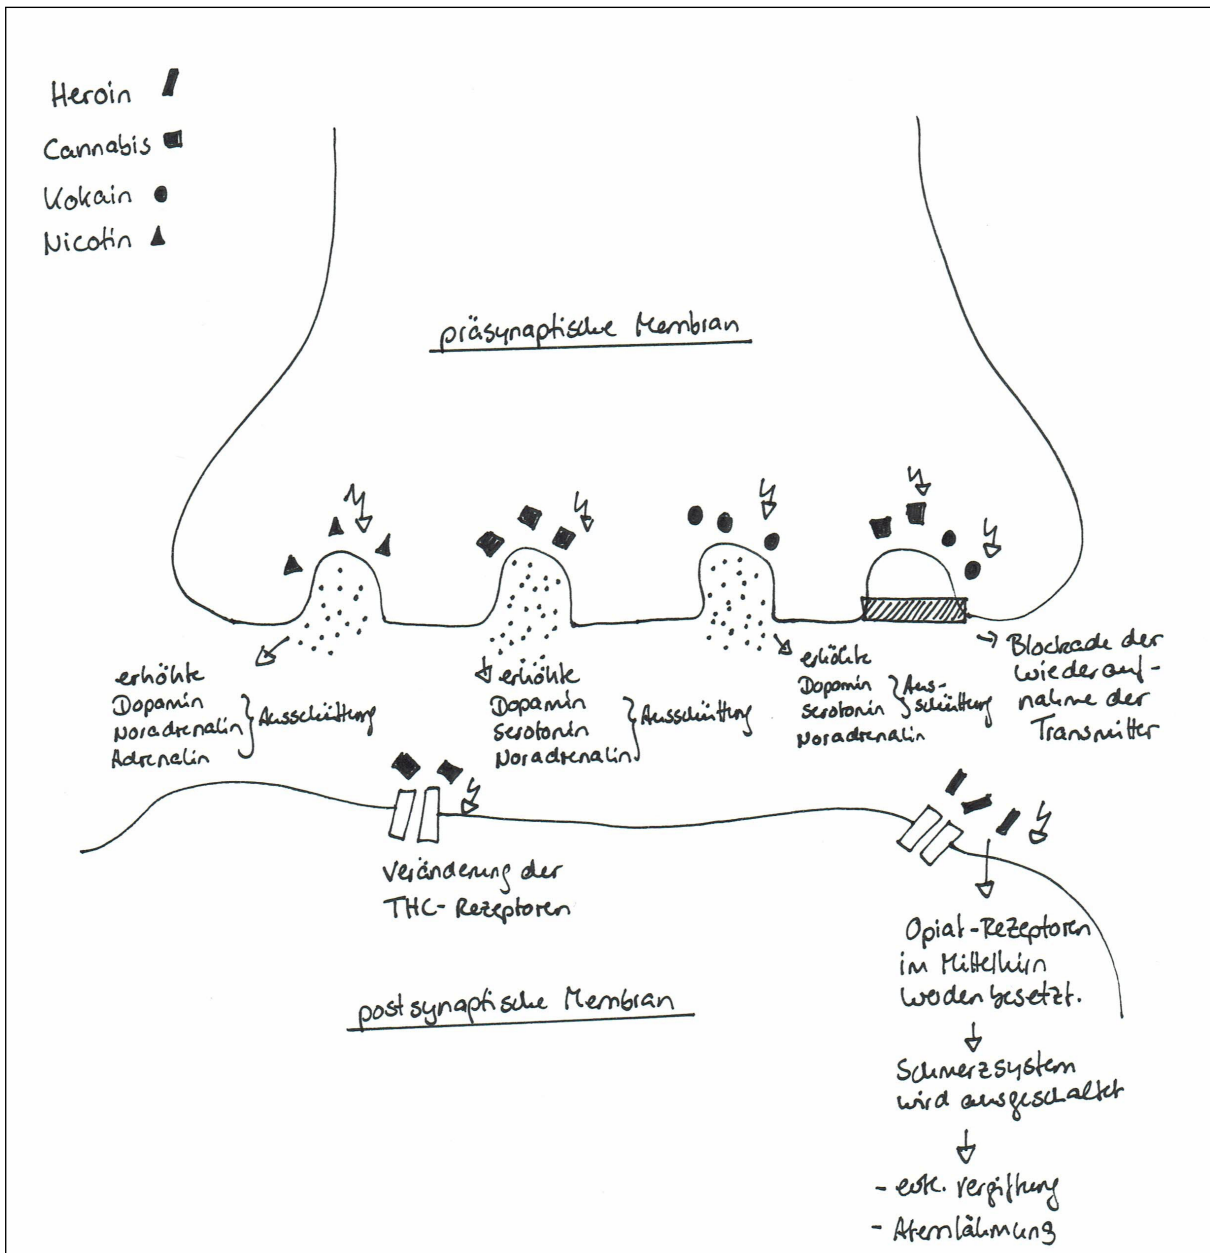 Heroin
Cannabis
Kokain
Nicotin
präsynaptische Membran
erhöhte
Dopamin
Noradrenalin
Adrenalin
Ausschüttung
erhöhte
Dopamin
Serotonin
Noradrenalin
Ausschüttung
erhöhte
Dopamin
Serotonin
Noradrenalin
Aus-
schüttung
Blockade der
Wiederauf-
nahme der
Transmitter
Veränderung der
THC-Rezeptoren
Opiat-Rezeptoren
im Mittelhirn
werden besetzt.
Schmerzsystem
wird ausgeschaltet
postsynaptische Membran
- evt. Vergiftung
- Atemlähmung